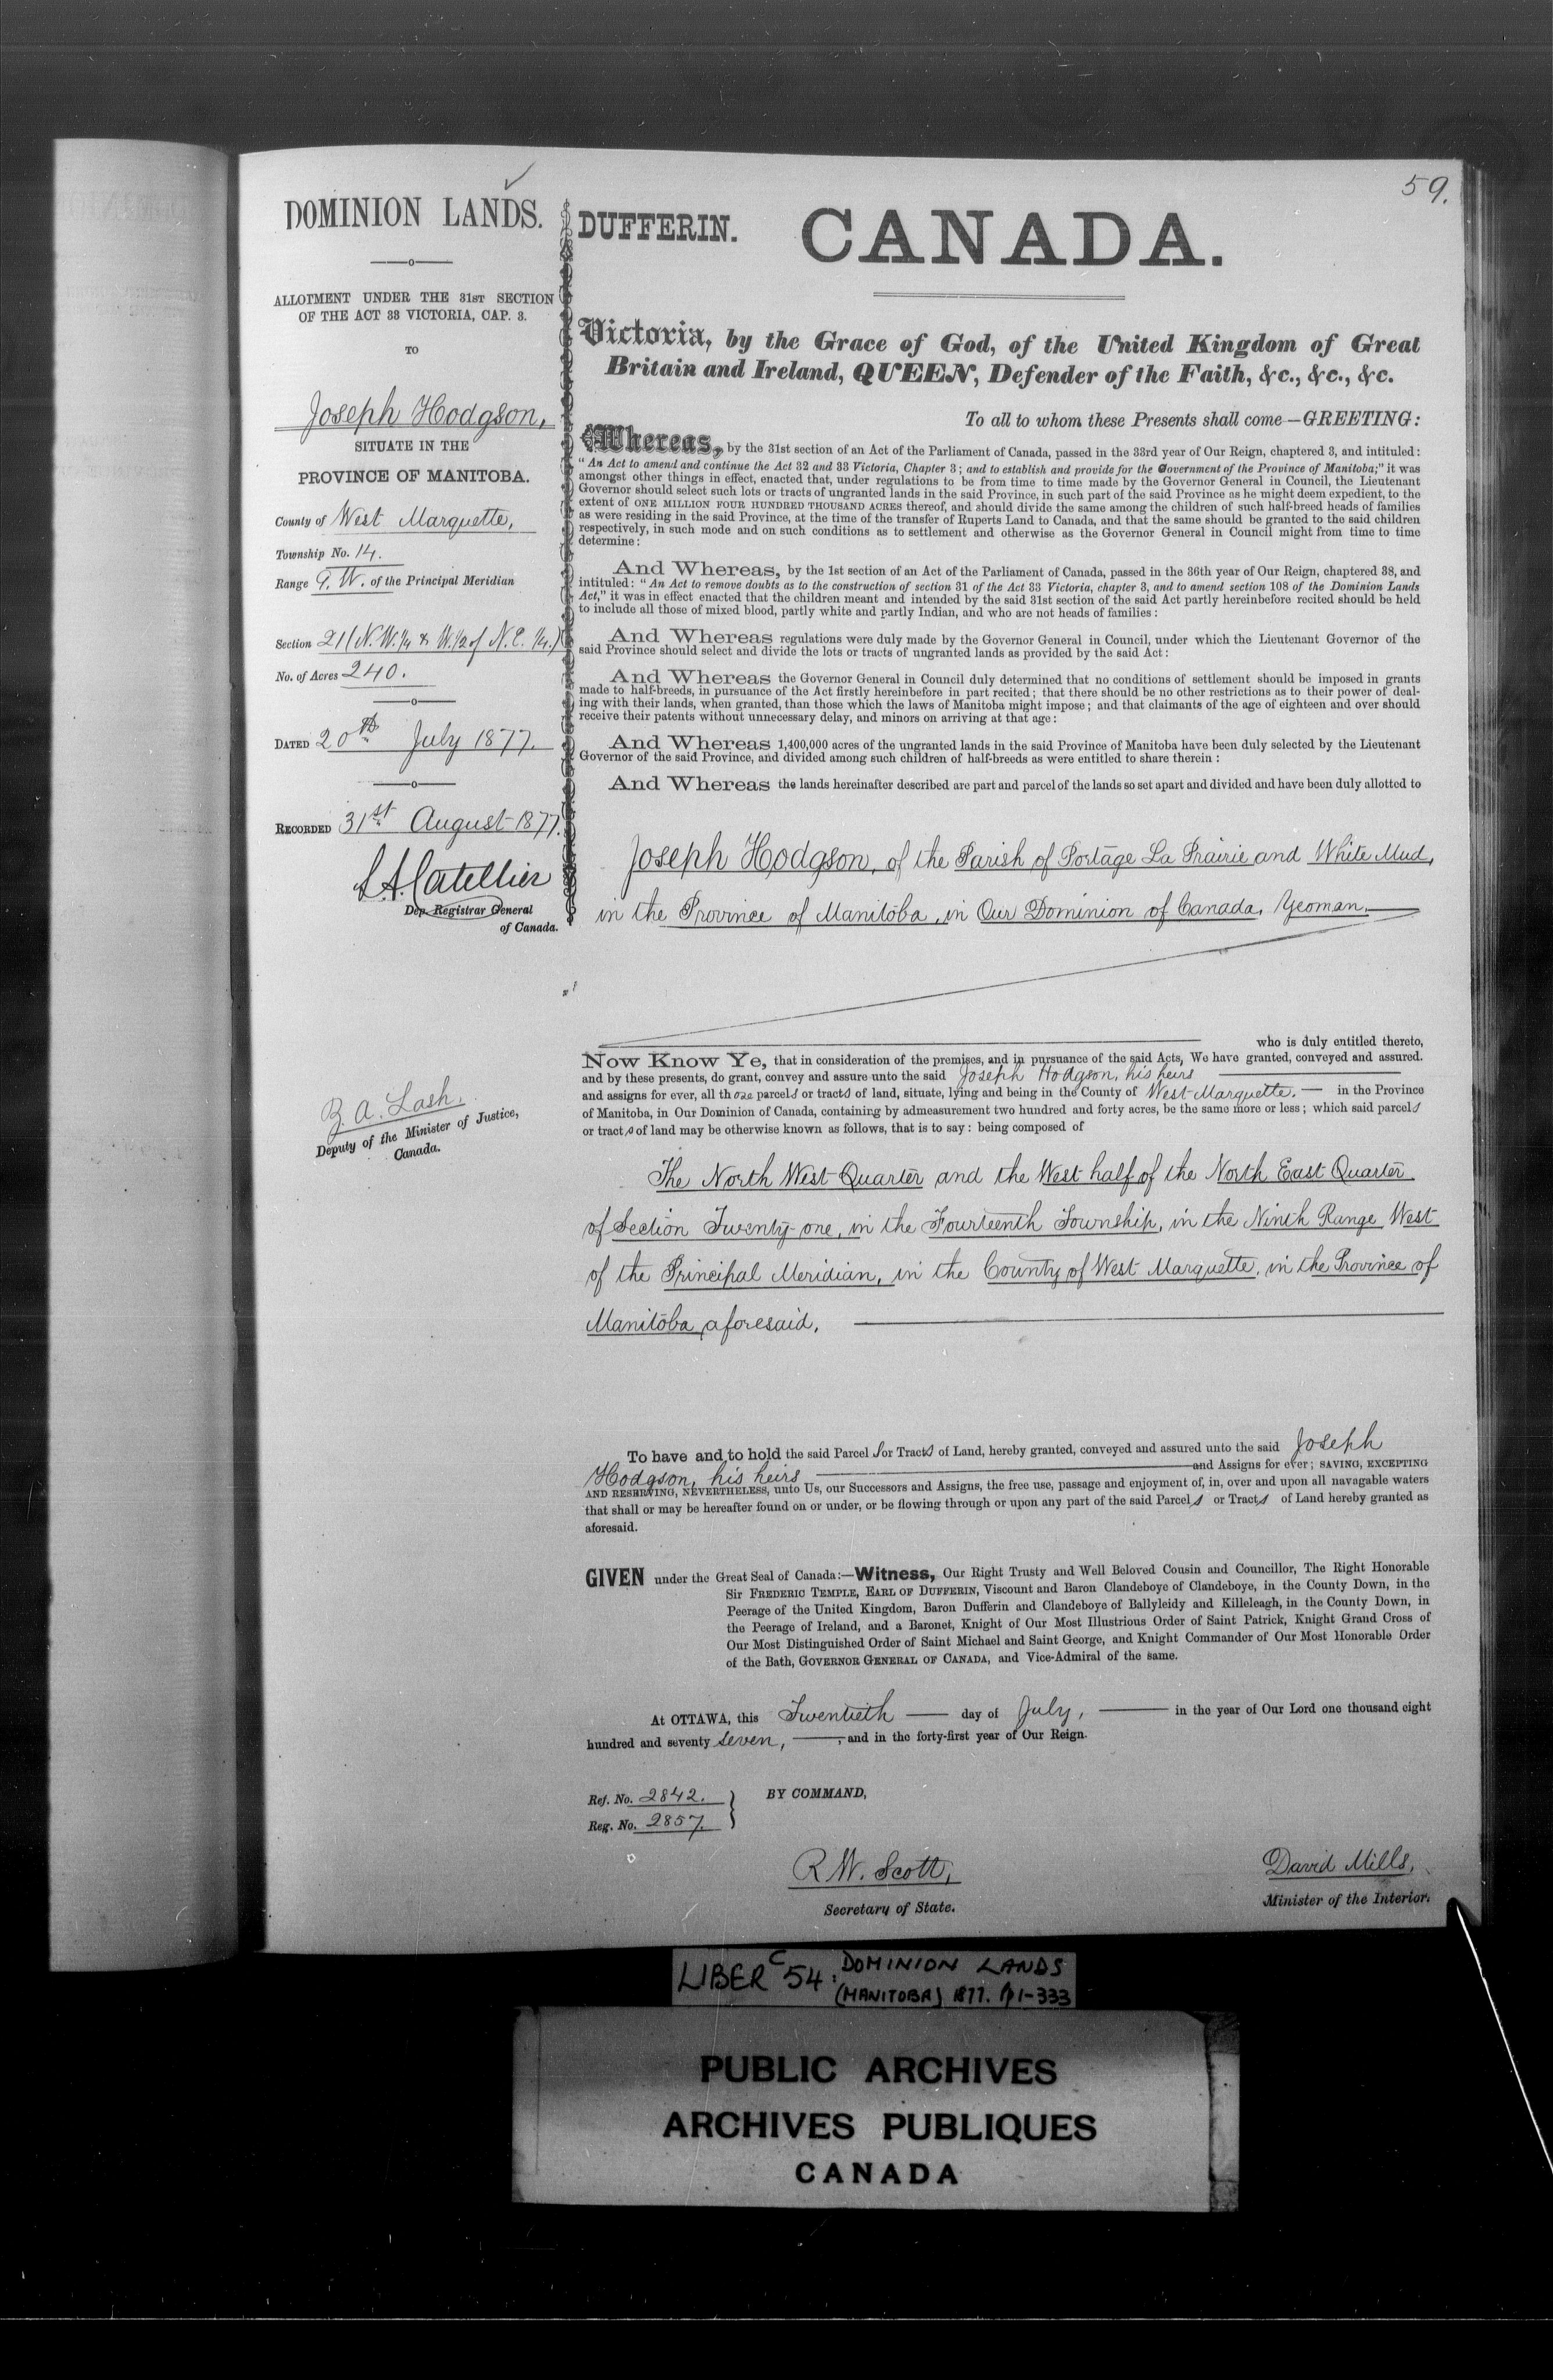 59.
DOMINION LANDS.
ALLOTMENT UNDER THE 31ST SECTION
OF THE ACT 33 VICTORIA, CAP. 3.
TO
Joseph Hodgson,
SITUATE IN THE
PROVINCE OF MANITOBA.
County of West Marquette,
Township No. 14.
Range 9. W. of the Principal Meridian
Section 21 (N.W.1/4 & W.1/2 of N.E. 1/4.)
No. of Acres 240.
DATED 20th July 1877.
RECORDED 31st August 1877.
L.A. Catellier
Dep. Registrar General
of Canada.
Z. A. Lash.
Deputy of the Minister of Justice,
Canada.
DUFFERIN. CANADA.
Victoria, by the Grace of God, of the United Kingdom of Great
Britain and Ireland, QUEEN, Defender of the Faith, &c., &c., &c.
To all to whom these Presents shall come—GREETING:
Whereas, by the 31st section of an Act of the Parliament of Canada, passed in the 33rd year of Our Reign, chaptered 3, and intituled:
"An Act to amend and continue the Act 32 and 33 Victoria, Chapter 3; and to establish and provide for the Government of the Province of Manitoba;" it was
amongst other things in effect, enacted that, under regulations to be from time to time made by the Governor General in Council, the Lieutenant
Governor should select such lots or tracts of ungranted lands in the said Province, in such part of the said Province as he might deem expedient, to the
extent of ONE MILLION FOUR HUNDRED THOUSAND ACRES thereof, and should divide the same among the children of such half-breed heads of families
as were residing in the said Province, at the time of the transfer of Ruperts Land to Canada, and that the same should be granted to the said children
respectively, in such mode and on such conditions as to settlement and otherwise as the Governor General in Council might from time to time
determine:
And Whereas, by the 1st section of an Act of the Parliament of Canada, passed in the 36th year of Our Reign, chaptered 38, and
intituled: "An Act to remove doubts as to the construction of section 31 of the Act 33 Victoria, chapter 3, and to amend section 108 of the Dominion Lands
Act," it was in effect enacted that the children meant and intended by the said 31st section of the said Act partly hereinbefore recited should be held
to include all those of mixed blood, partly white and partly Indian, and who are not heads of families:
And Whereas regulations were duly made by the Governor General in Council, under which the Lieutenant Governor of the
said Province should select and divide the lots or tracts of ungranted lands as provided by the said Act:
And Whereas the Governor General in Council duly determined that no conditions of settlement should be imposed in grants
made to half-breeds, in pursuance of the Act firstly hereinbefore in part recited; that there should be no other restrictions as to their power of deal-
ing with their lands, when granted, than those which the laws of Manitoba might impose; and that claimants of the age of eighteen and over should
receive their patents without unnecessary delay, and minors on arriving at that age:
And Whereas 1,400,000 acres of the ungranted lands in the said Province of Manitoba have been duly selected by the Lieutenant
Governor of the said Province, and divided among such children of half-breeds as were entitled to share therein:
And Whereas the lands hereinafter described are part and parcel of the lands so set apart and divided and have been duly allotted to
Joseph Hodgson, of the Parish of Portage La Prairie and White Mud,
in the Province of Manitoba, in Our Dominion of Canada, Yeoman.
who is duly entitled thereto,
Now Know Ye, that in consideration of the premises, and in pursuance of the said Acts, We have granted, conveyed and assured.
and by these presents, do grant, convey and assure unto the said Joseph Hodgson, his heirs
and assigns for ever, all those parcels or tracts of land, situate, lying and being in the County of West Marquette. in the Province
of Manitoba, in Our Dominion of Canada, containing by admeasurement two hundred and forty acres, be the same more or less; which said parcels
or tracts of land may be otherwise known as follows, that is to say: being composed of
The North West Quarter and the West half of the North East Quarter
of Section Twenty-one, in the Fourteenth Township, in the Ninth Range West
of the Principal Meridian, in the County of West Marquette, in the Province of
Manitoba aforesaid,
To have and to hold the said Parcels or Tracts of Land, hereby granted, conveyed and assured unto the said Joseph
Hodgson, his heirs and Assigns for ever; SAVING, EXCEPTING
AND RESERVING, NEVERTHELESS, unto Us, our Successors and Assigns, the free use, passage and enjoyment of, in, over and upon all navagable waters
that shall or may be hereafter found on or under, or be flowing through or upon any part of the said Parcels or Tracts of Land hereby granted as
aforesaid.
GIVEN under the Great Seal of Canada:—Witness, Our Right Trusty and Well Beloved Cousin and Councillor, The Right Honorable
Sir FREDERIC TEMPLE, EARL OF DUFFERIN, Viscount and Baron Clandeboye of Clandeboye, in the County Down, in the
Peerage of the United Kingdom, Baron Dufferin and Clandeboye of Ballyleidy and Killeleagh, in the County Down, in
the Peerage of Ireland, and a Baronet, Knight of Our Most Illustrious Order of Saint Patrick, Knight Grand Cross of
Our Most Distinguished Order of Saint Michael and Saint George, and Knight Commander of Our Most Honorable Order
of the Bath, GOVERNOR GENERAL OF CANADA, and Vice-Admiral of the same.
At OTTAWA, this Twentieth day of July, in the year of Our Lord one thousand eight
hundred and seventy seven, and in the forty-first year of Our Reign.
Ref. No. 2842.
Reg. No. 2857.
BY COMMAND,
R. W. Scott,
Secretary of State.
David Mills,
Minister of the Interior.
LIBER C 54: DOMINION LANDS
(MANITOBA) 1877. pp 1-333
PUBLIC ARCHIVES
ARCHIVES PUBLIQUES
CANADA